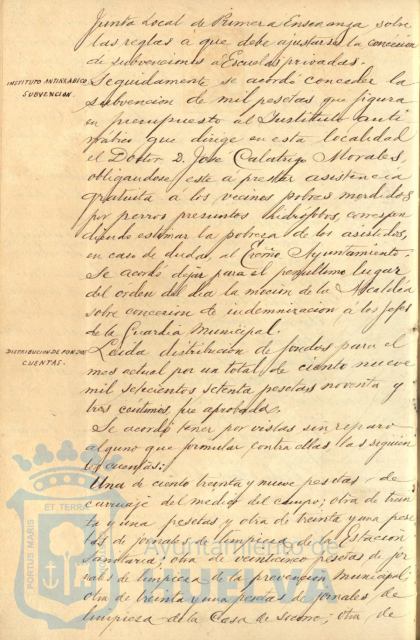 Junta Local de Primera Enseñanza sobre
las reglas á que debe ajustarse la concesión
de subvenciones á Escuelas privadas.
INSTITUTO ANTIRRABICO
SUBVENCION.
Seguidamente se acordó conceder la
subvención de mil pesetas que figura
en presupuesto al Instituto anti
rrábico que dirige en esta localidad
el Doctor D. José Calatrigo Morales,
obligandose este a prestar asistencia
gratuita a los vecinos pobres mordidos
por perros presuntos hidrófobos, correspon
diendo estimar la pobreza de los asistidos,
en caso de duda, al Excmo Ayuntamiento.
Se acordó dejar para el penultimo lugar
del orden del dia la moción de la Alcaldia
sobre concesion de indemnizacion a los Jefes
de la Guardia Municipal.
DISTRIBUCION DE FONDOS
CUENTAS.
Leida distribución de fondos para el
mes actual por un total de ciento nueve
mil setecientos setenta pesetas noventa y
tres centimos fue aprobada.
Se acordó tener por vistas sin reparo
alguno que formular contra ellas las siguien
tes cuentas:
Una de ciento treinta y nueve pesetas, de
carruaje del medico del campo; otra de trein
ta y una pesetas y otra de treinta y una pese
tas de jornales de limpieza de la Estacion
Sanitaria; otra de veinticinco pesetas de jor
nales de limpieza de la prevencion municipal;
otra de treinta y una pesetas de jornales de
limpieza de la Casa de socorro; otra, de
PORTUS MARIS
ET TERRAE
Ayuntamiento de
HUELVA